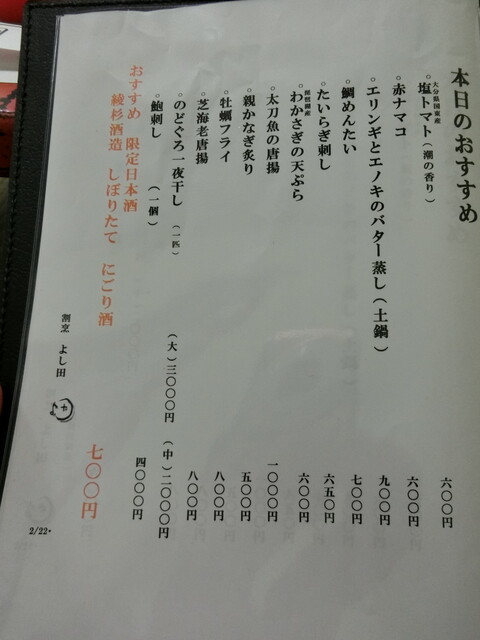 本日のおすすめ
大分県国東産
。塩トマト（潮の香り） 六〇〇円
。赤ナマコ 六〇〇円
。エリンギとエノキのバター蒸し（土鍋） 九〇〇円
。鯛めんたい 七〇〇円
。たいらぎ刺し 六五〇円
琵琶湖産
。わかさぎの天ぷら 六〇〇円
。太刀魚の唐揚 一〇〇〇円
。親かなぎ炙り 五〇〇円
。牡蠣フライ 八〇〇円
。芝海老唐揚 八〇〇円
。のどぐろ一夜干し（一匹） （大）三〇〇〇円 （中）二〇〇〇円
。鮑刺し（一個） 四〇〇〇円
おすすめ 限定日本酒
綾杉酒造 しぼりたて にごり酒 七〇〇円
割烹 よし田
2/22・